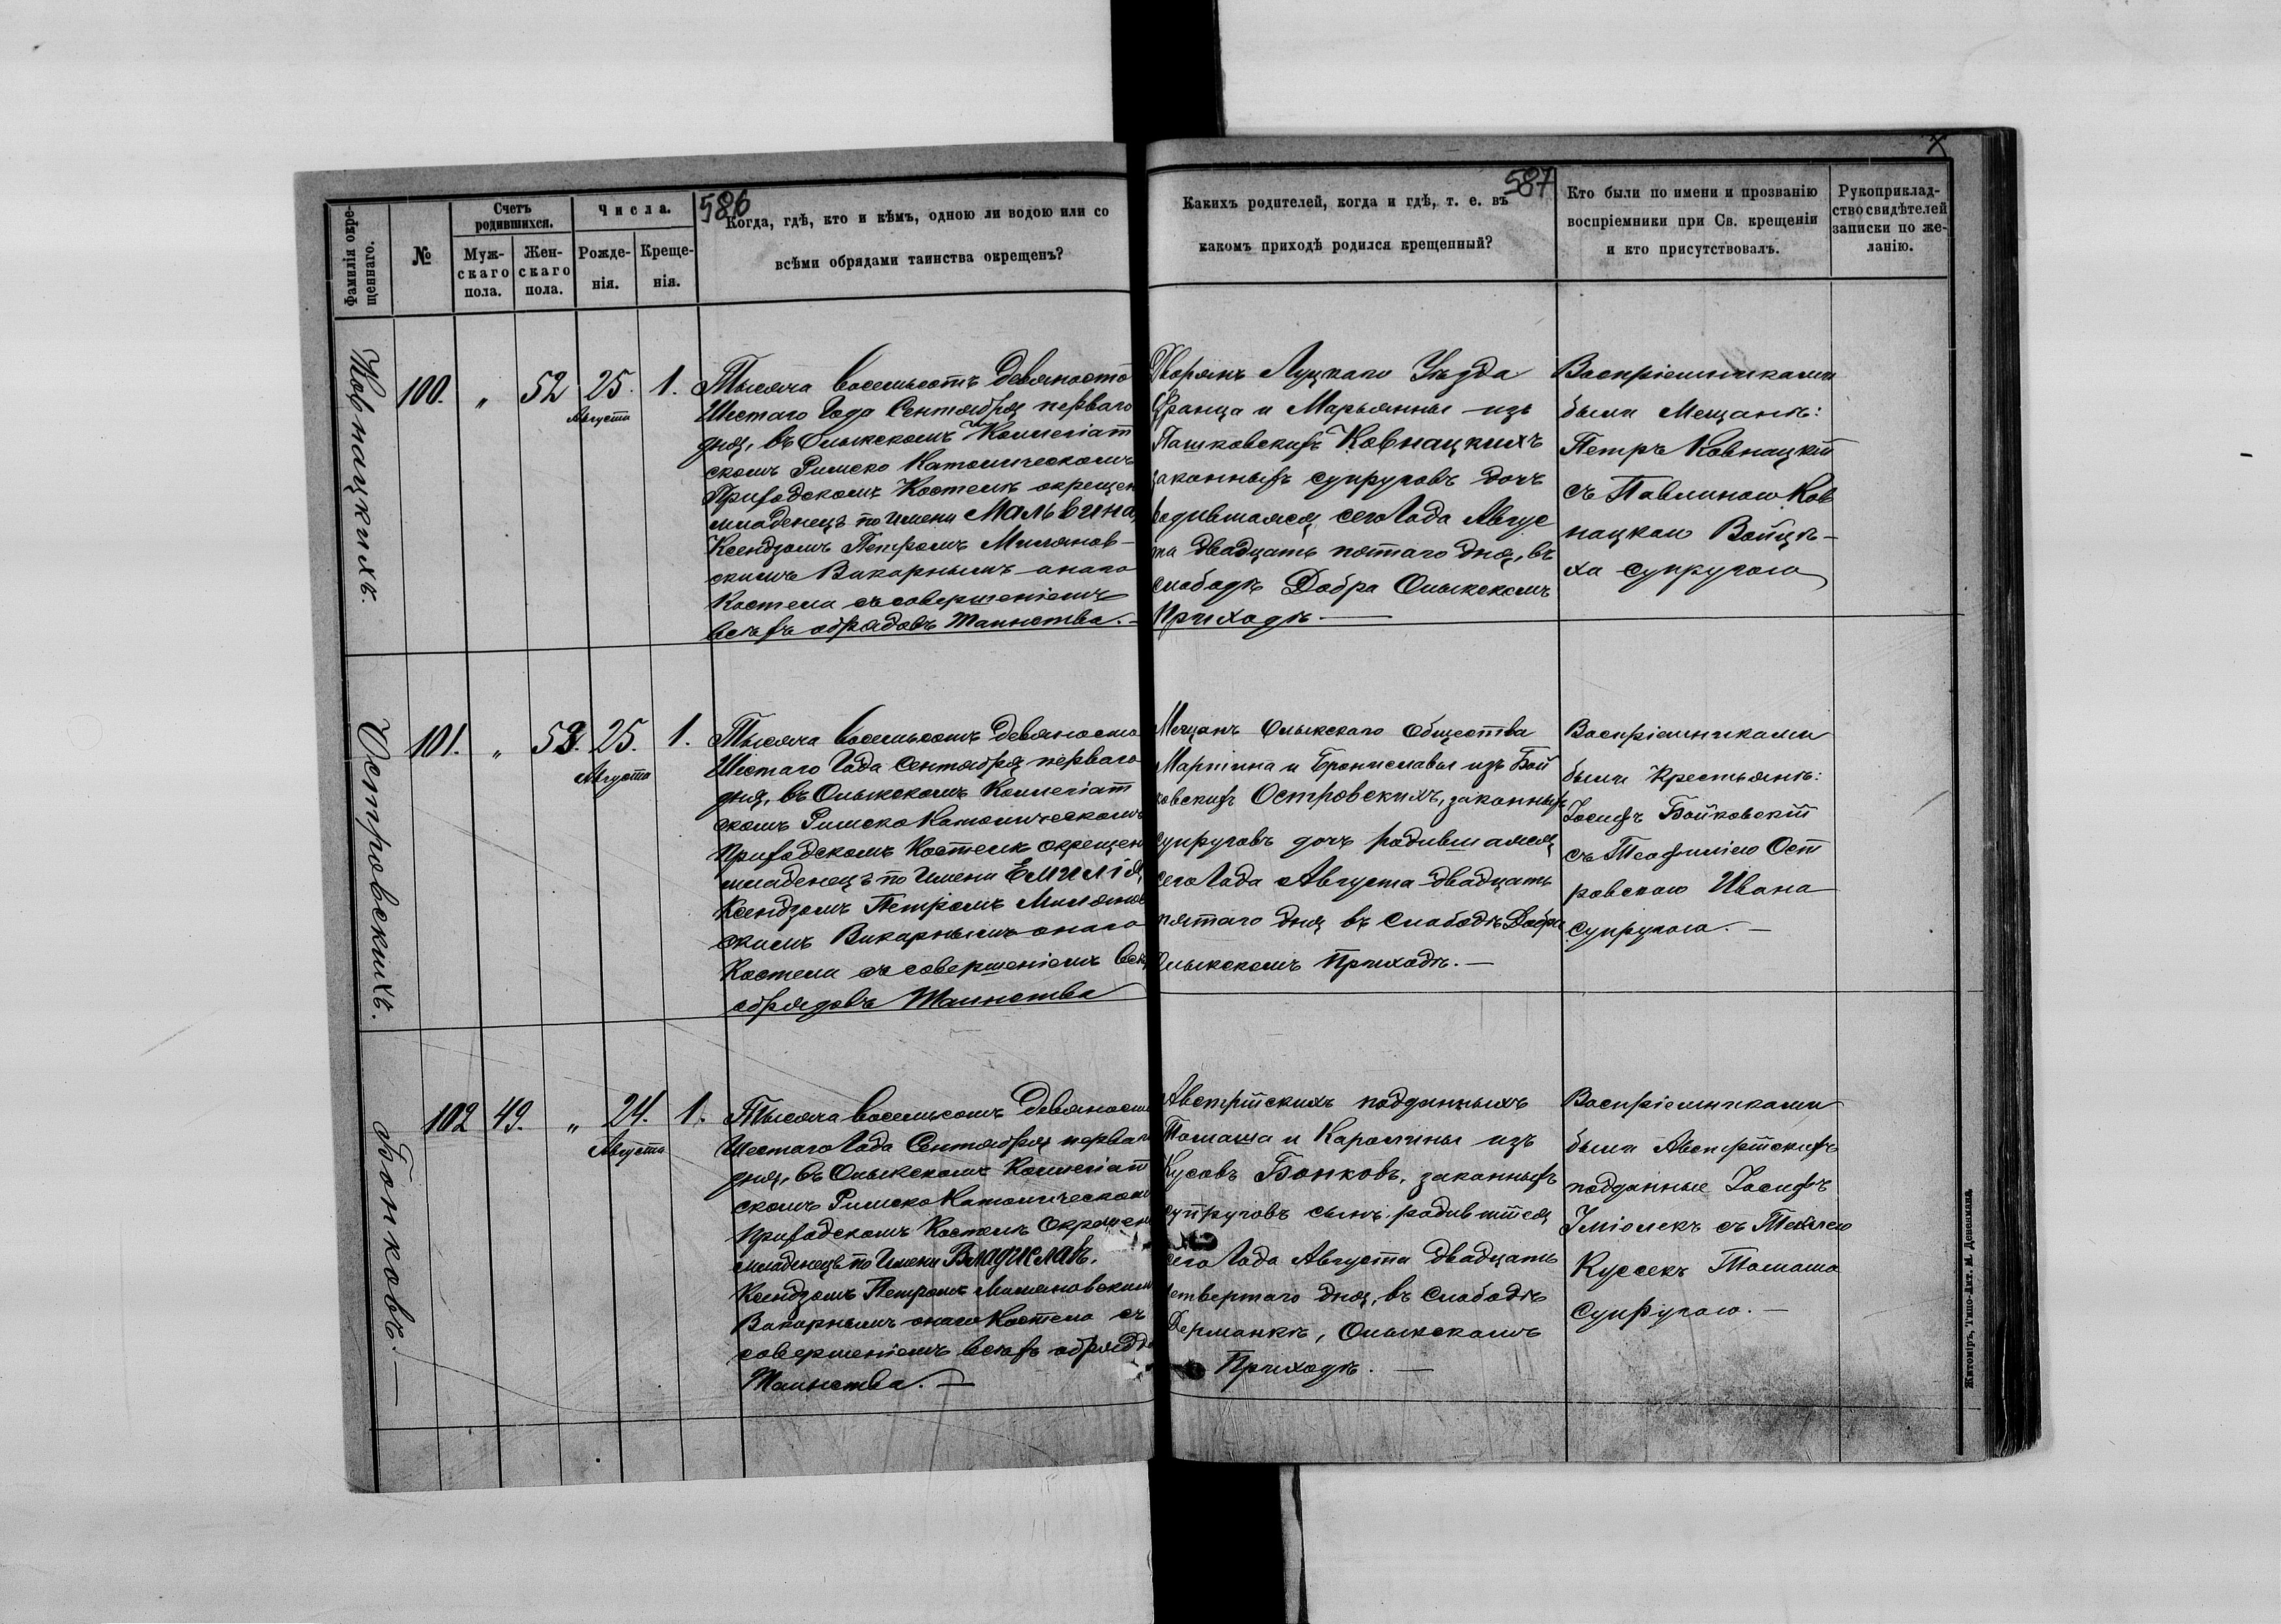 586
587
Фамилія окре-
щеннаго.
№
Счетъ
родившихся.
Муж-
скаго
пола.
Жен-
скаго
пола.
Числа.
Рожде-
нія.
Креще-
нія.
Когда, гдѣ, кто и кѣмъ, одною ли водою или со
всѣми обрядами таинства окрещенъ?
Какихъ родителей, когда и гдѣ, т. е. въ
какомъ приходѣ родился крещенный?
Кто были по имени и прозванію
воспріемники при Св. крещеніи
и кто присутствовалъ.
Рукоприклад-
ство свидѣтелей
записки по же-
ланію.
Ковнацкихъ.
100. „ 52 25. 1.
Августа
Тысяча восемьсотъ девяносто
Шестаго Года Сентября перваго
дня, въ Олыкскомъ Коллегіат
скомъ Римско Католическомъ
Приходскомъ Костелѣ окрещен
младенецъ по имени Мальвина,
Ксендзомъ Петромъ Миланов-
скимъ Викарнымъ онаго
Костела съ совершеніемъ
всѣхъ обрядовъ Таинства.
Дворянъ Луцкаго Уѣзда
Франца и Марьянны изъ
Пашковскихъ Ковнацкихъ
законныхъ супруговъ дочь
родившаяся сего Года Авгус
та двадцать пятаго дня, въ
слободѣ Добра Олыкскомъ
Приходѣ.
Воспріемниками
были Мещанѣ:
Петръ Ковнацкій
съ Павлиною Ков
нацкою Войцѣ-
ха супругою
Островскихъ.
101. „ 53. 25. 1.
Августа
Тысяча восемьсотъ девяносто
Шестаго Года Сентября перваго
дня, въ Олыкскомъ Коллегіат
скомъ Римско Католическомъ
Приходскомъ Костелѣ окрещен
младенецъ по Имени Емилія,
Ксендзомъ Петромъ Миланов
скимъ Викарнымъ онаго
Костела съ совершеніемъ всѣх
обрядовъ Таинства
Мещанъ Олыкскаго Общества
Мартина и Брониславы изъ Бой
ковскихъ Островскихъ, законныхъ
супруговъ дочь родившаяся
сего Года Августа двадцать
пятаго дня въ Слободѣ Добра
Олыкскомъ Приходѣ.
Воспріемниками
были Крестьянѣ:
Іосифъ Бойковскій
съ Теофилію Ост
ровскою Ивана
супругою.
Бонковъ.
102 49. „ 24. 1.
Августа
Тысяча восемьсотъ девяносто
Шестаго Года Сентября перваго
дня, въ Олыкскомъ Коллегіат
скомъ Римско Католическомъ
Приходскомъ Костелѣ Окрещен
младенецъ по Имени Владиславъ,
Ксендзомъ Петромъ Милановскимъ
Викарнымъ онаго Костела съ
совершеніемъ всѣхъ обрядов
Таинства.
Австрійскихъ подданныхъ
Томаша и Каролины изъ
Кусовъ Бонковъ, законныхъ
супруговъ сынъ, родившійся
сего Года Августа двадцать
четвертаго дня, въ Слободѣ
Дерманкѣ, Олыкскомъ
Приходѣ.
Воспріемниками
были Австрійскихъ
подданные Іосифъ
съ Теклею
Куссекъ Томаша
Супругою.
Житоміръ, Типо-Лит. М. Дененмана.